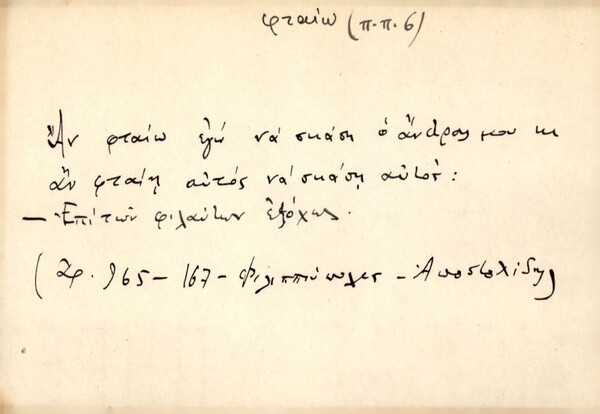 φταίω (π.π. 6)
Ἄν φταίω ἐγώ νά σκάση ὁ ἄνδρας μου κι
ἄν φταίη αὐτός νά σκάση αὐτός:
— Ἐπί τῶν φιλαύτων ἐξόχως.
965 – 167 – Φιλιππούπολις – Ἀποστολίδης)